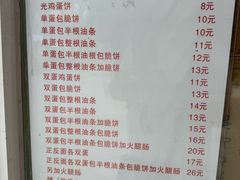 光鸡蛋饼 8元
单蛋包脆饼 10元
单蛋包半根油条 10元
单蛋包整根油条 11元
单蛋包半根油条包脆饼 12元
单蛋包整根油条加脆饼 13元
双蛋鸡蛋饼 11元
双蛋包脆饼 13元
双蛋包半根油条 13元
双蛋包整根油条 14元
双蛋包半根油条加脆饼 15元
双蛋包整根油条包脆饼 16元
双蛋包半根油条包脆饼加火腿肠
正反面各双蛋 20元
正反面各双蛋包半根油条包脆饼 17元
双蛋包整根油条包脆饼加火腿肠 26元
另加火腿肠